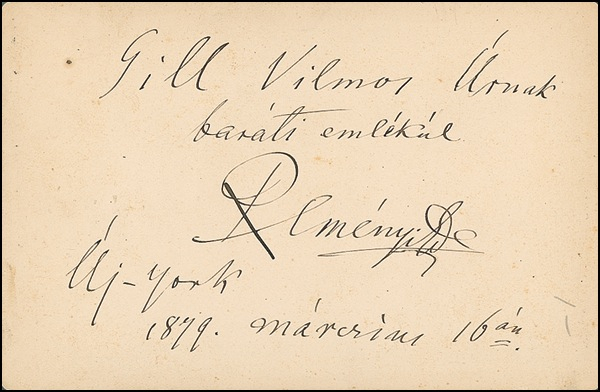 Gill Vilmos Úrnak
baráti emlékül
Reményi Ede
Új-York
1879. márczius 16án.